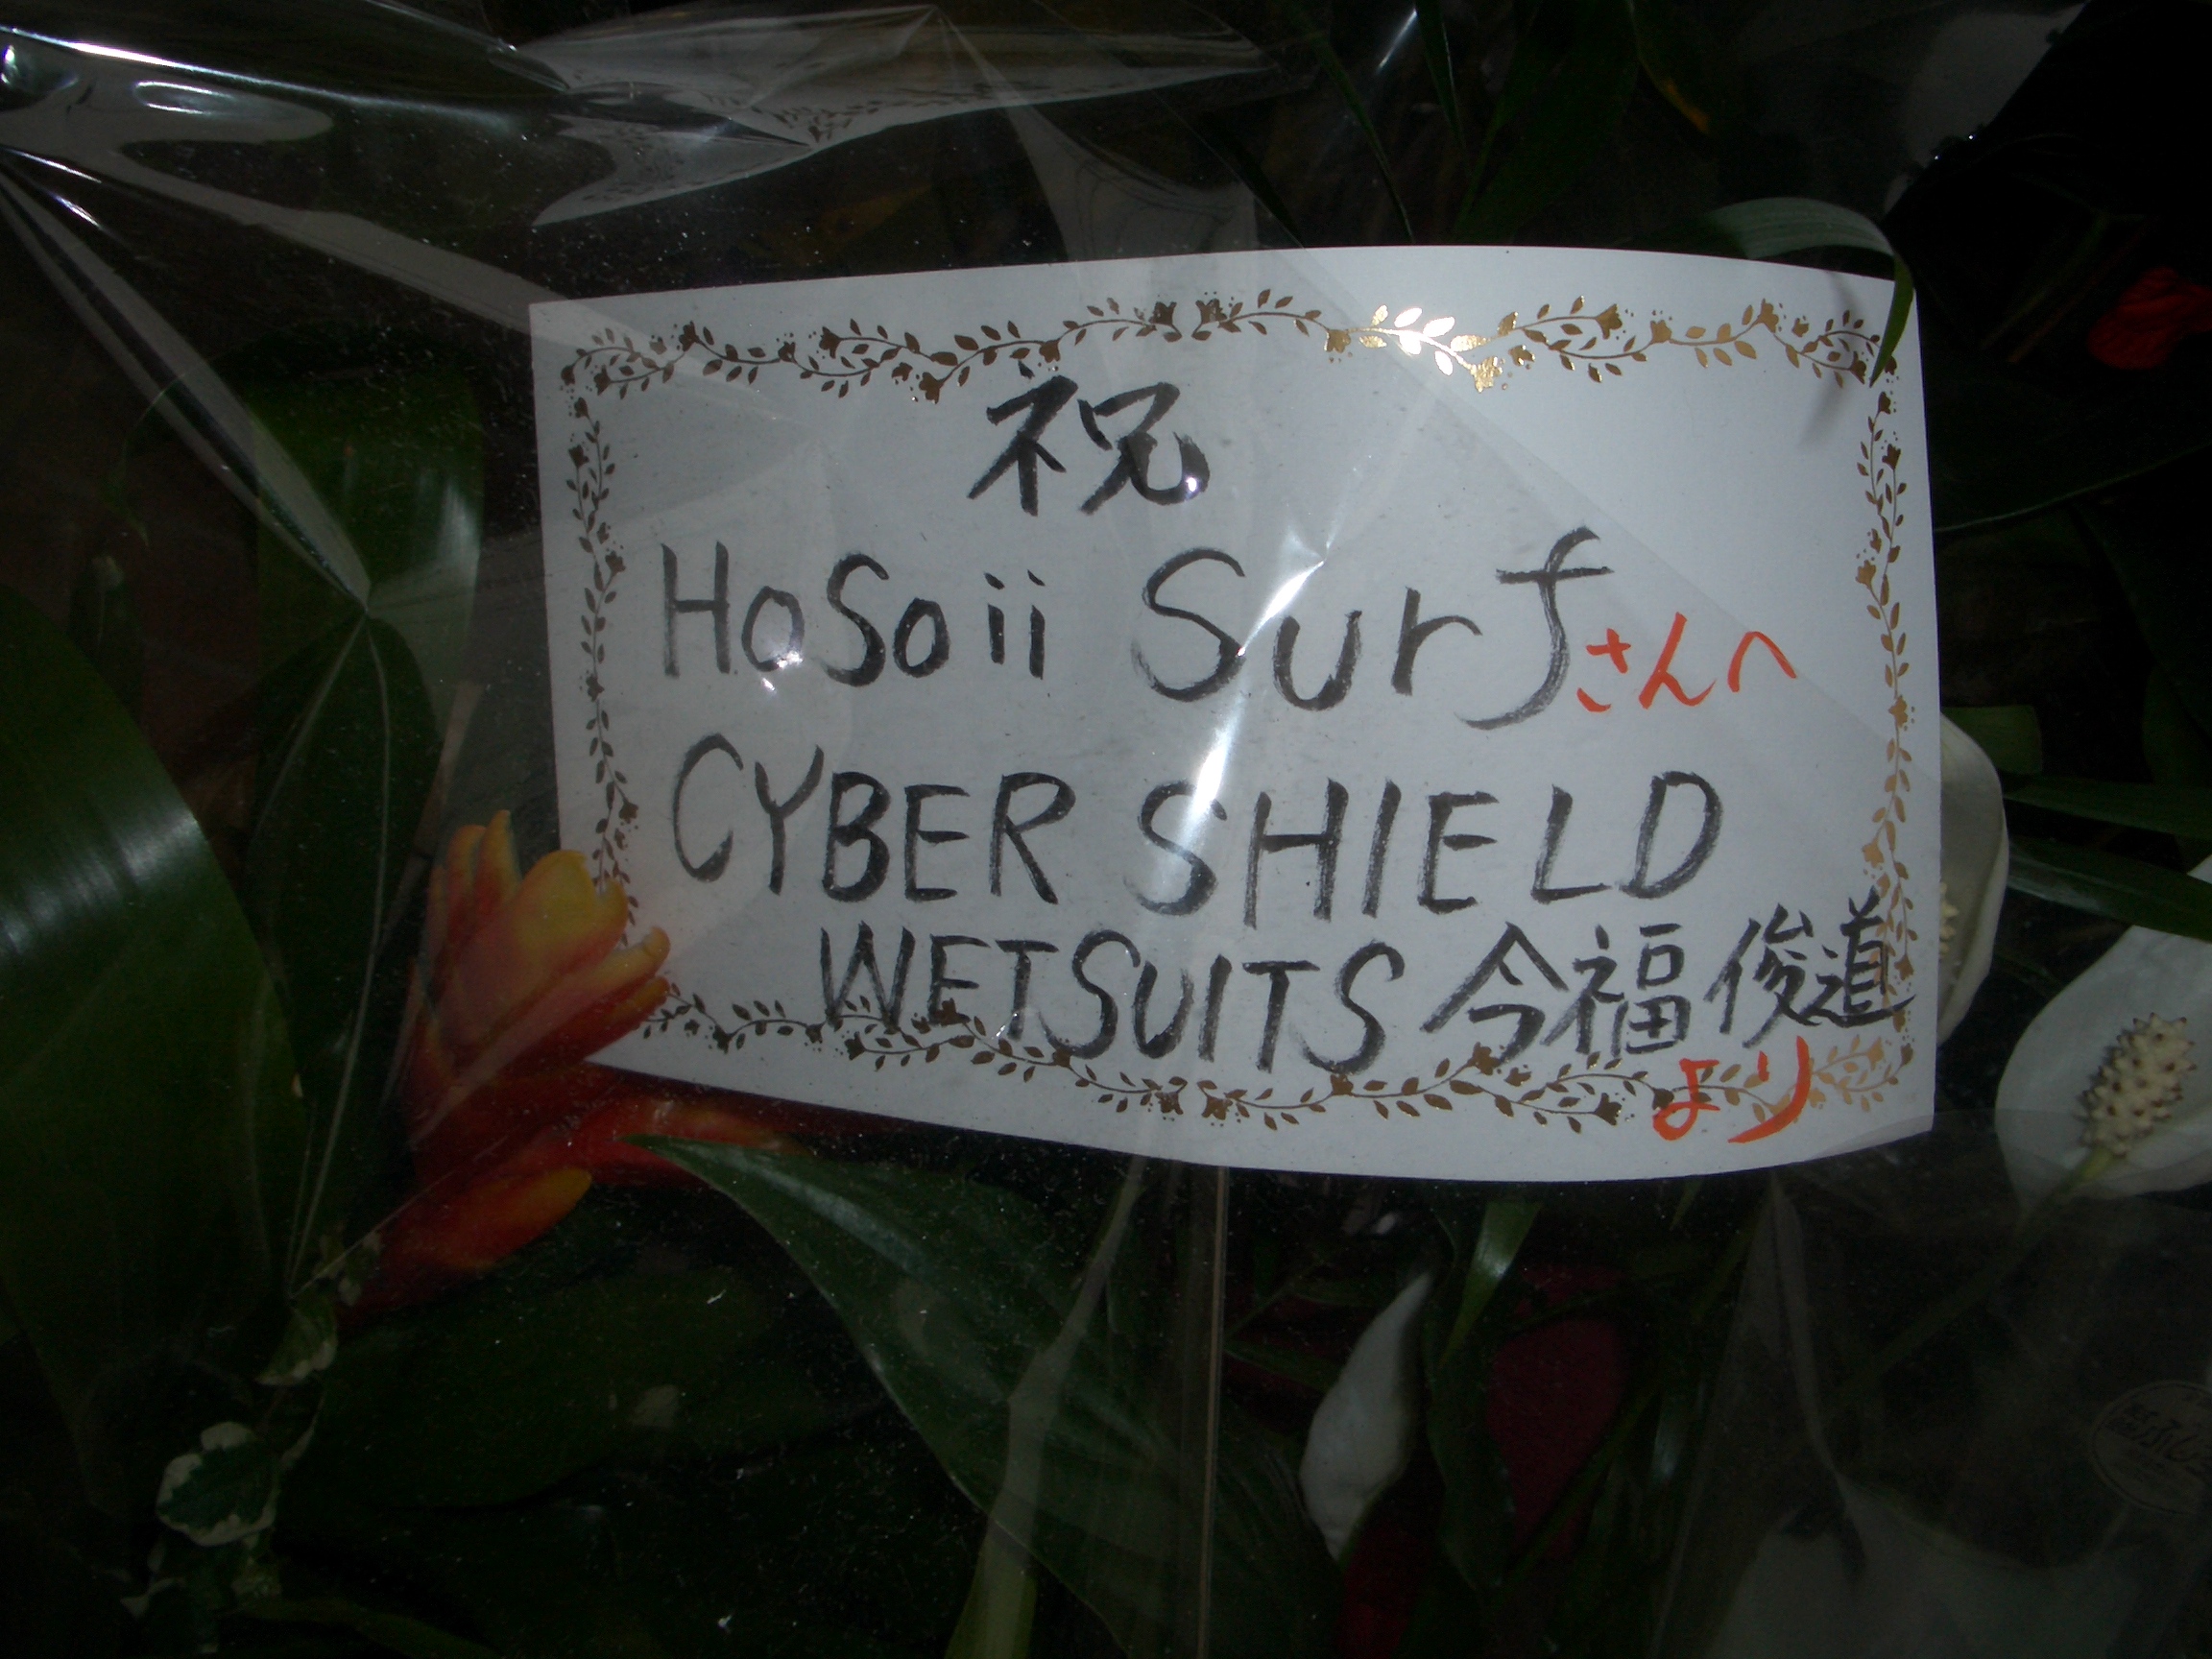 祝
HoSoii Surfさんへ
CYBER SHIELD
WETSUITS 今福俊道
より